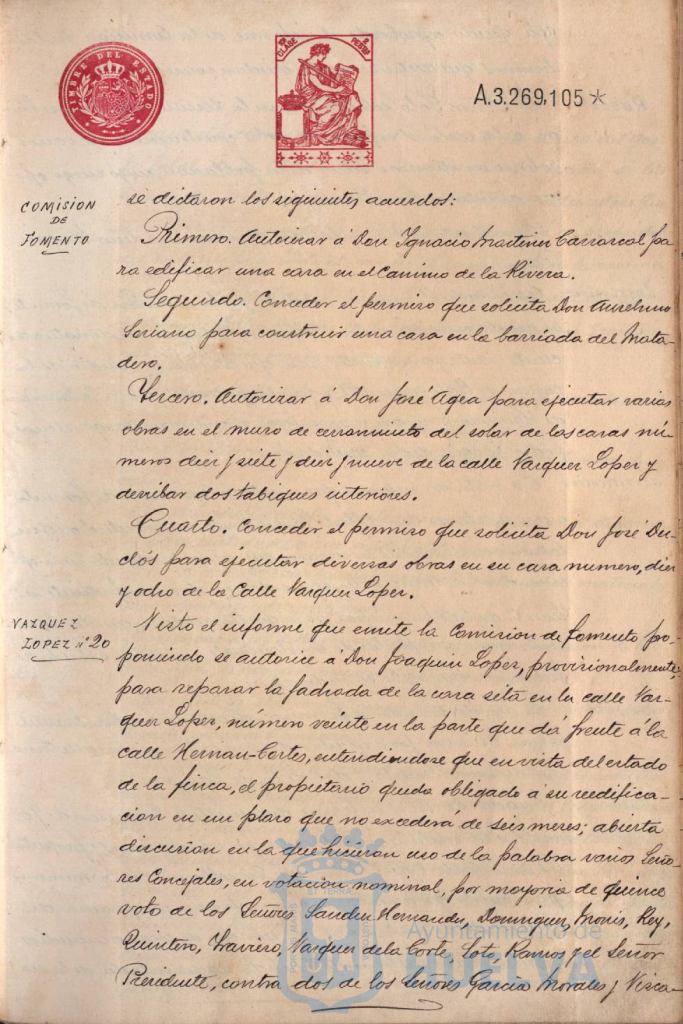 TIMBRE DEL ESTADO
CLASE
PESETAS
A.3.269,105*
COMISION
DE
FOMENTO
se dictaron los siguientes acuerdos:
Primero. Autorizar á Don Ignacio Martinez Carrascal pa
ra edificar una casa en el Camino de la Rivera.
Segundo. Conceder el permiso que solicita Don Anselmo
Soriano para construir una casa en la barriada del Mata-
dero.
Tercero. Autorizar á Don José Agea para ejecutar varias
obras en el muro de cerramiento del solar de las casas nú-
meros diez y siete y diez y nueve de la calle Vazquez Lopez y
derribar dos tabiques interiores.
Cuarto. Conceder el permiso que solicita Don José Du-
clós para ejecutar diversas obras en su casa numero, diez
y ocho de la Calle Vazquez Lopez.
VAZQUEZ
LOPEZ nº 20
Visto el informe que emite la Comision de fomento pro-
poniendo se autorice á Don Joaquin Lopez, provisionalmente,
para reparar la fachada de la casa sita en la calle Vaz-
quez Lopez, número veinte en la parte que dá frente á la
calle Hernan-Cortes, entendiendose que en vista del estado
de la finca, el propietario queda obligado á su reedifica-
cion en un plazo que no excederá de seis meses; abierta
discusion en la que hicieron uso de la palabra varios Seño-
res Concejales, en votacion nominal, por mayoria de quince
voto de los Señores Hernandez, Dominguez, Monis, Rey,
Quintero, Traviero, Vazquez de la Corte, Soto, Ramos y el Señor
Presidente, contra dos de los Señores Garcia Morales y Visca-
Ayuntamiento de
HUELVA